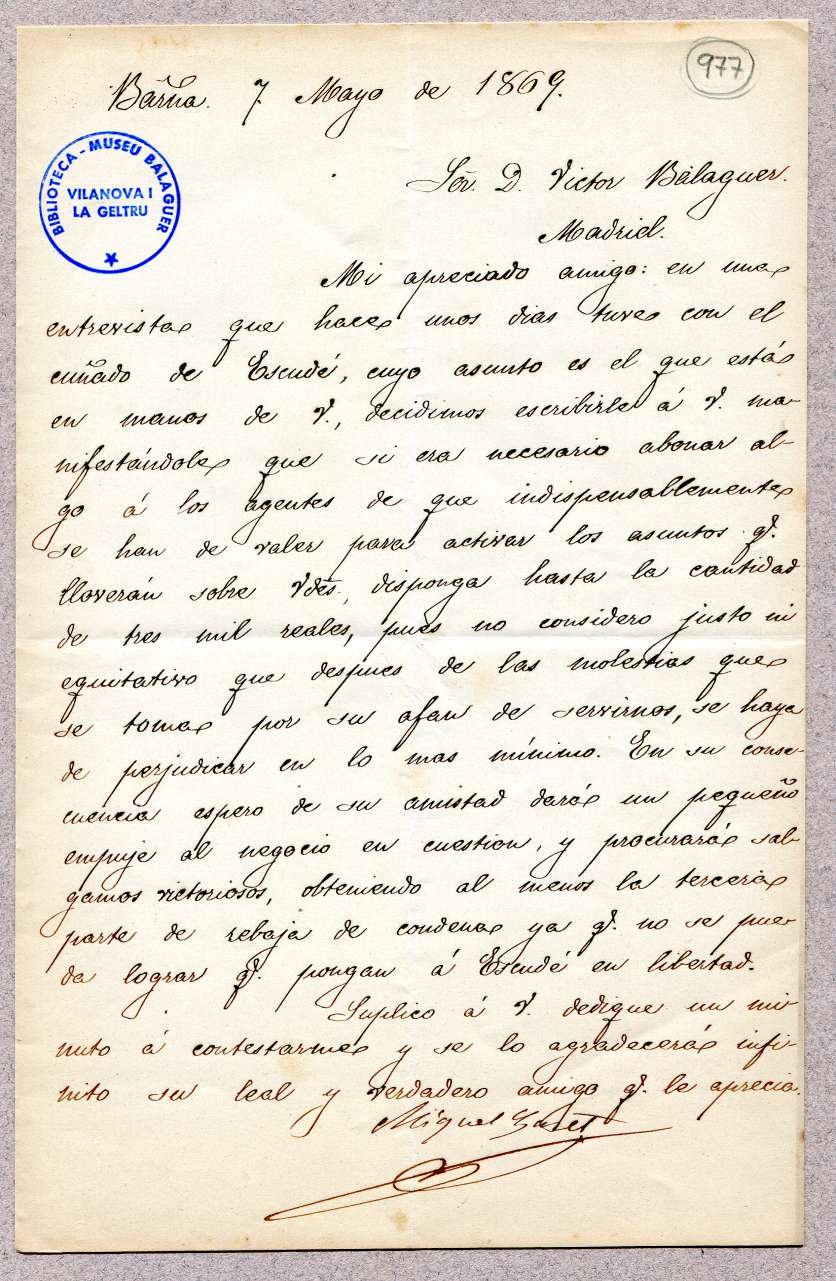 977
Barña. 7. Mayo de 1869.
BIBLIOTECA - MUSEU BALAGUER
VILANOVA I
LA GELTRU
Sór. D. Victor Balaguer.
Madrid.
Mi apreciado amigo: en una
entrevista que hace unos dias tuve con el
cuñado de Escudé, cuyo asunto es el que está
en manos de V., decidimos escribirle á V. ma-
nifestándole que si era necesario abonar al-
go á los agentes de que indispensablemente
se han de valer para activar los asuntos q.
lloverán sobre Vdes., disponga hasta la cantidad
de tres mil reales, pues no considero justo ni
equitativo que despues de las molestias que
se toma por su afan de servirnos, se haya
de perjudicar en lo mas mínimo. En su conse-
cuencia espero de su amistad dará un pequeño
empuje al negocio en cuestion, y procurará sal-
gamos victoriosos, obteniendo al menos la tercera
parte de rebaja de condena ya q. no se pue-
da lograr q. pongan á Escudé en libertad.
Suplico á V. dedique un mi-
nuto á contestarme y se lo agradecerá infi-
nito su leal y verdadero amigo q. le aprecia.
Miguel